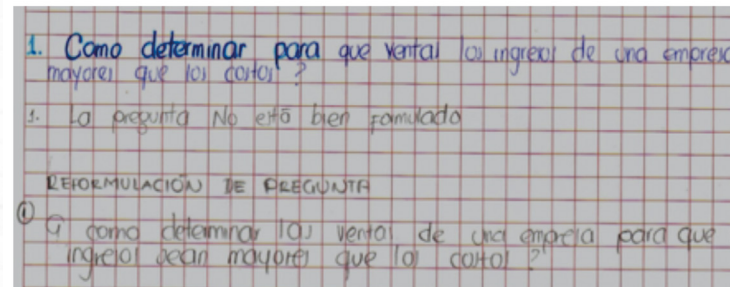 1. Como determinar para que ventas los ingresos de una empresa
mayores que los costos ?
1. La pregunta No está bien formulado
REFORMULACIÓN DE PREGUNTA
① ¿ como determinar las ventas de una empresa para que
ingresos sean mayores que los costos ?